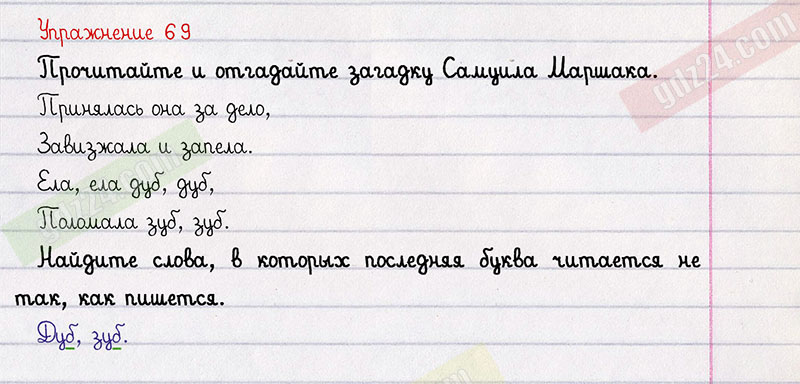 Упражнение 69
Прочитайте и отгадайте загадку Самуила Маршака.
Принялась она за дело,
Завизжала и запела.
Ела, ела дуб, дуб,
Поломала зуб, зуб.
Найдите слова, в которых последняя буква читается не
так, как пишется.
Дуб, зуб.
gdz24.com
gdz24.com